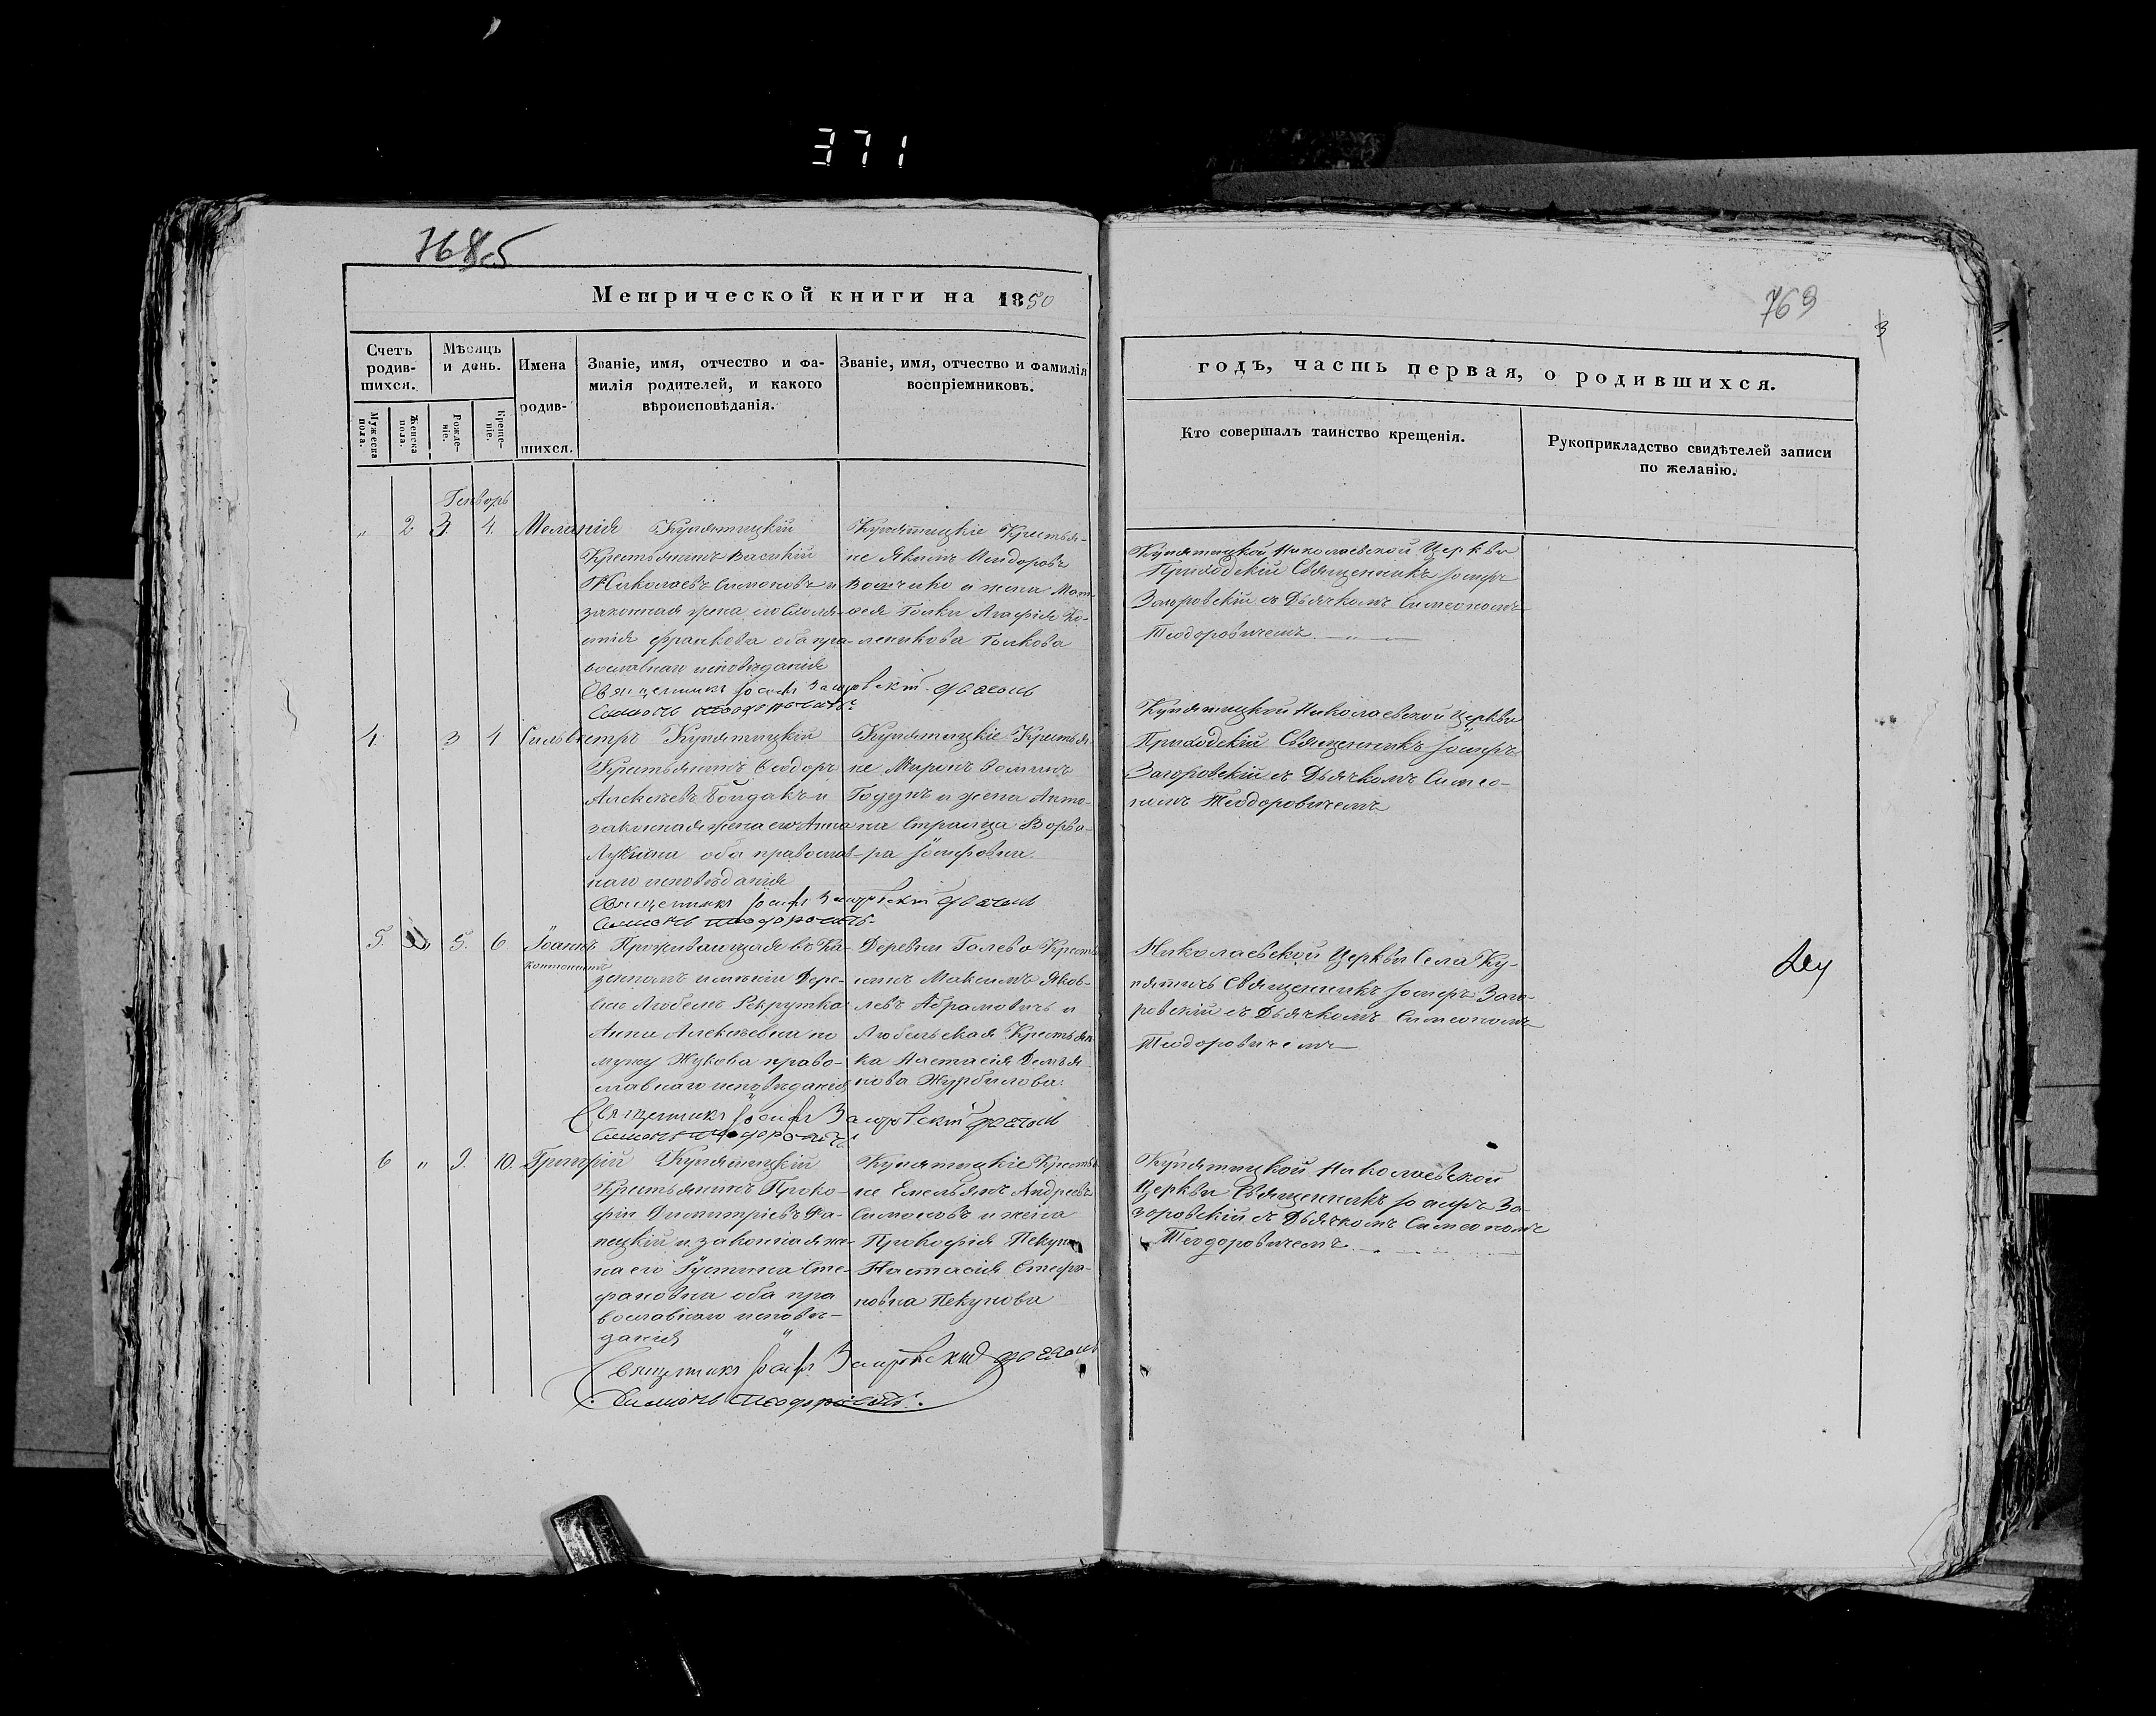 371
768 об
Метрической книги на 1850
Счетъ родив-шихся.
Мужеска пола.
Женска пола.
Мѣсяцъ и день.
Рожде-ніе.
Креще-ніе.
Имена родив-шихся.
Званіе, имя, отчество и фа-
милія родителей, и какого
вѣроисповѣданія.
Званіе, имя, отчество и фамилія
воспріемниковъ.
Генворь
" 2 3 4. Меланія
Купятицкій
Крестьянинъ Василій
Николаевъ Симоновъ и
законная жена его
Франкова оба пра-
вославнаго исповѣданія
Священникъ Іосифъ Загоровскій дьячокъ
Симонъ Теодоровичъ
Купятицкіе Крестья-
не Якимъ Исидоровъ
и жена
Гольки Агафія
Голкова
4 3 4 Сильвестръ
Купятицкій
Крестьянинъ Ѳеодоръ
Алексѣевъ Бойдакъ и
законная жена его Анна
Лукина оба православ-
наго исповѣданія
Священникъ Іосифъ Загоровскій дьячокъ
Симонъ Теодоровичъ
Купятицкіе Крестья-
не Миронъ Ѳоминъ
Годунъ и жена Анто-
на Страица Варва-
ра Іосифовна
5. 5. 6 Іоаннъ
Проживающая въ Ка-
зенномъ имѣніи Дере-
вню Любель Рекрутка
Анна Алексѣевна по
мужу Жукова право-
славнаго исповѣданія
Священникъ Іосифъ Загоровскій дьячокъ
Симонъ Теодоровичъ
Деревни Галево Крестья-
нинъ Максимъ Яков-
левъ Абрамовичъ и
Любельская Крестьян-
ка Настасія Демья-
нова Журбилова.
6 " 9. 10. Григорій
Купятицкій
Крестьянинъ Проко-
фій Димитріевъ
и законная же-
на его Густина Сте-
фановна оба пра
вославнаго исповѣ-
данія
Священникъ Іосифъ Загоровскій дьячокъ
Симонъ Теодоровичъ.
Купятицкіе Крестья-
не Емельянъ Андреевъ
Симоновъ и жена
Прокофія Пекуна
Настасія Стефа-
новна Пекунова
769
3
годъ, часть первая, о родившихся.
Кто совершалъ таинство крещенія.
Рукоприкладство свидѣтелей записи
по желанію.
Купятицкой Николаевской Церкви
Приходскій Священникъ Іосифъ
Загоровскій съ Дьячкомъ Симеономъ
Теодоровичемъ
Купятицкой Николаевской Церкви
Приходскій Священникъ Іосифъ
Загоровскій съ Дьячкомъ Симео-
номъ Теодоровичемъ
Николаевской Церкви Села Ку-
пятичъ Священникъ Іосифъ Заго-
ровскій съ Дьячкомъ Симеономъ
Теодоровичемъ
Купятицкой Николаевской
Церкви Священникъ Іосифъ За-
горовскій съ Дьячкомъ Симеономъ
Теодоровичемъ